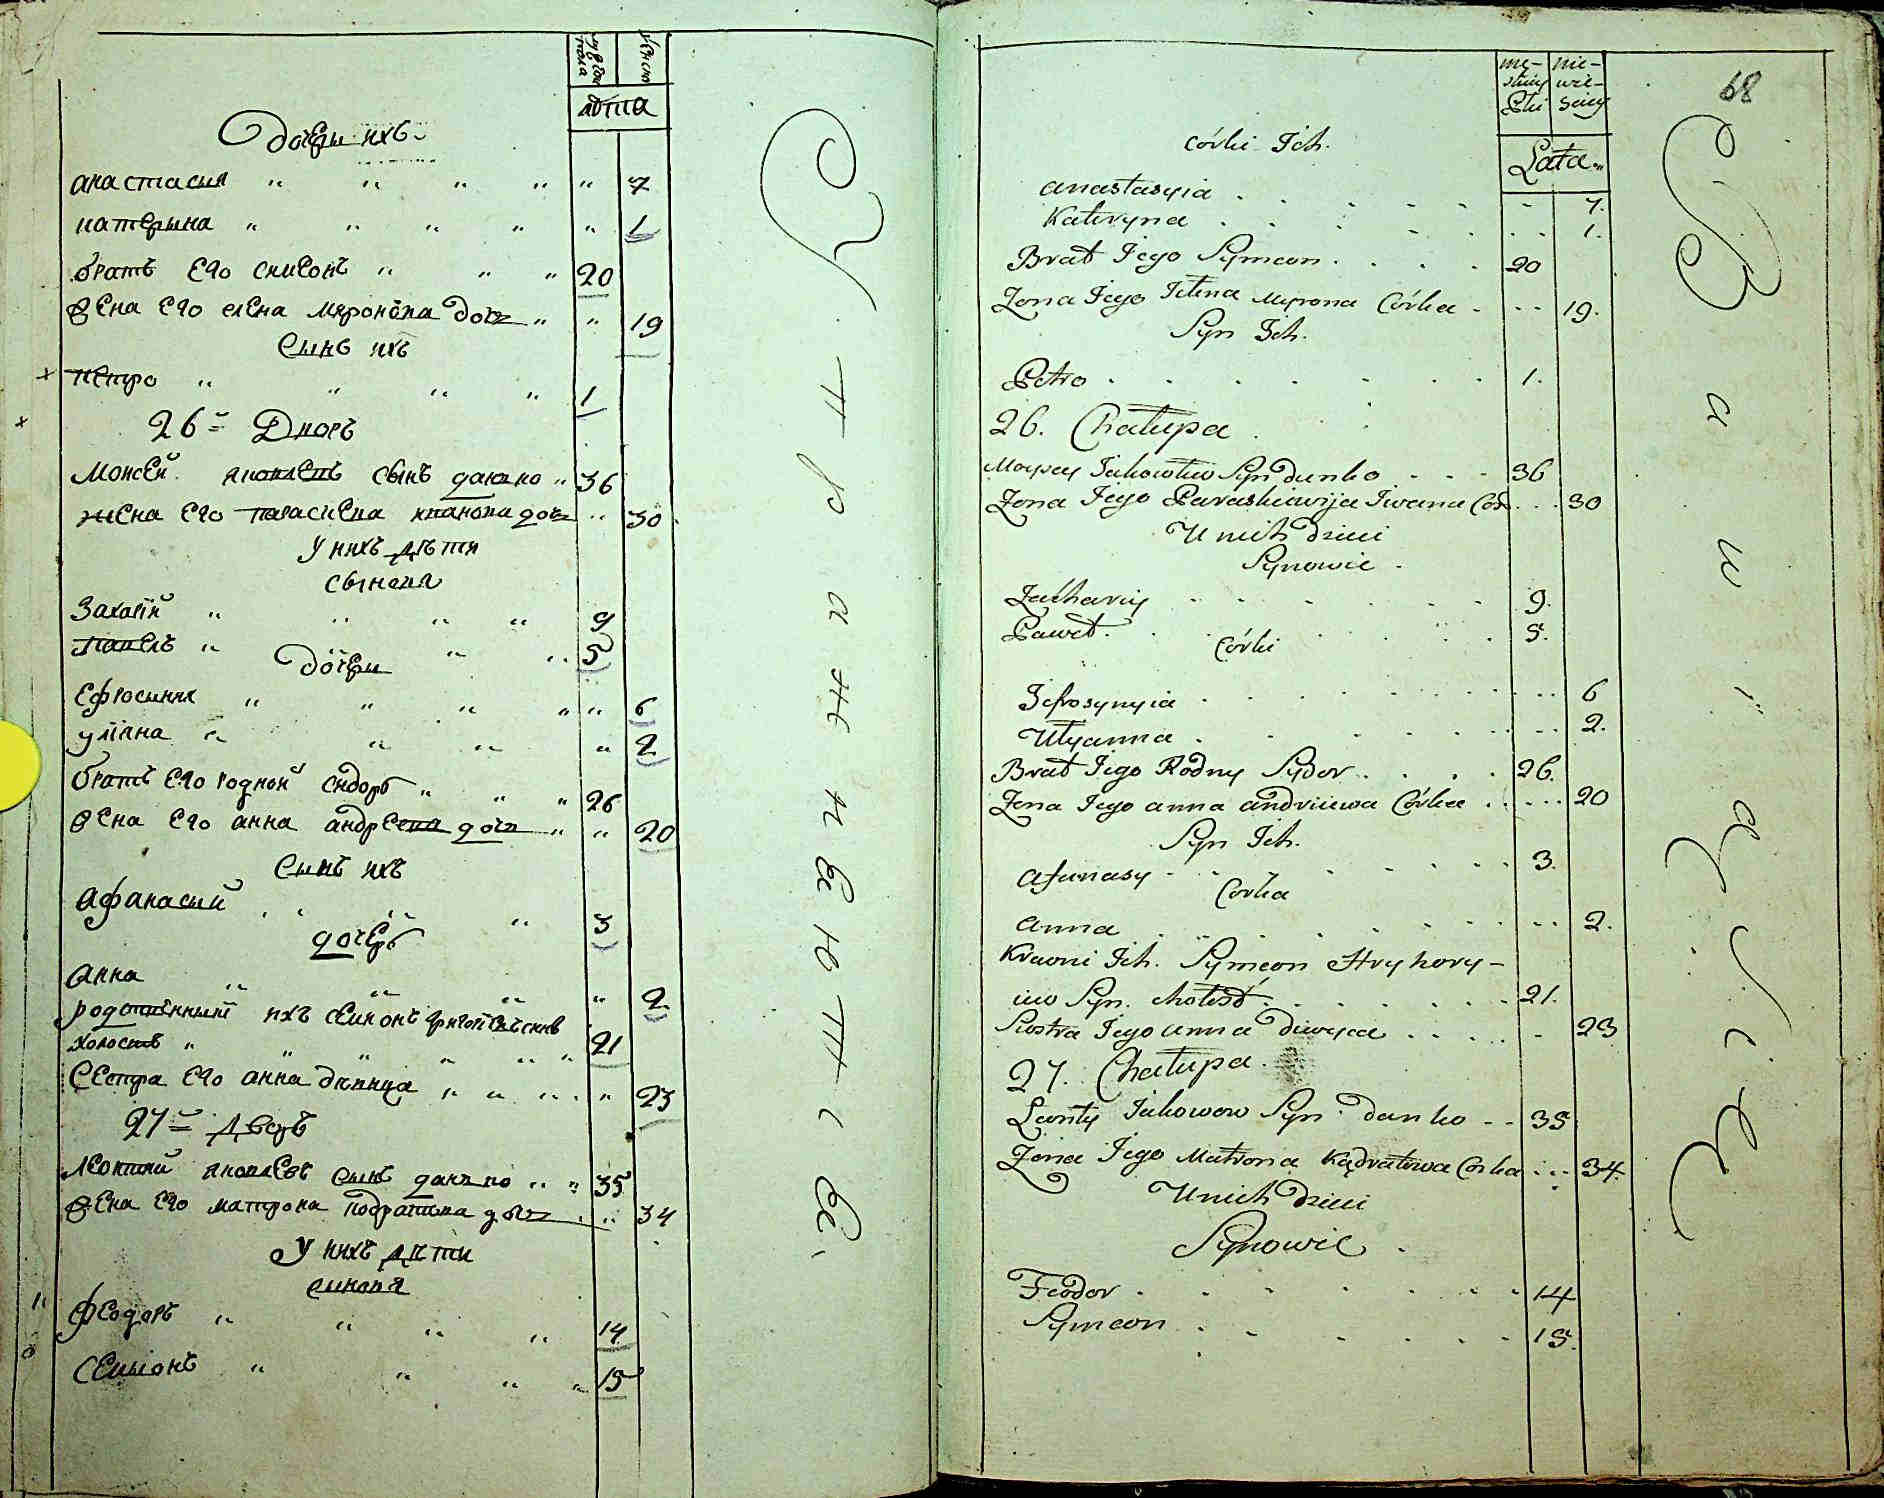 мужска пола
женско
лѣта
Дочери ихъ
анастасия 7
катерына 1
братъ его симеонъ 20
жена его елена миронова дочь 19
Сынъ ихъ
петро 1
26й Дворъ
Моисей яковлевъ сынъ данько 36
жена его параскева иванова дочь 30
У нихъ дѣти
сыновя
Захарїй 9
павелъ 5
дочери
Ефросиния 6
улїана 2
братъ его родной сидоръ 26
жена его анна андреева дочь 20
Сынъ ихъ
Афанасий 3
дочерь
Анна 2
родственный ихъ семионъ григориевъ синъ
холостъ 21
Сестра его анна дивица 23
27й дворъ
леонтий яковлевъ сынъ данько 35
жена его матрона кодратова дочь 34
У нихъ дѣти
синовя
Феодоръ 14
Семионъ 15
Упражненіе
mę-
skiey
Płci
nie-
wie-
sciey
Lata
68
Córki Ich.
anastasyia 7.
Kateryna 1.
Brat Jego Symeon 20
Zona Jego Jelena Myrona Córka 19.
Syn Ich.
Petro 1.
26. Chałupa
Moysey Jakowlew Syn danko 36
Zona Jego Paraskiewija Iwana Cor 30
U nich dzieci
Synowie
Zachariy 9.
Paweł 5.
Córki
Jefrosynyia 6
Ulyanna 2.
Brat Jego Rodny Sydor 26.
Zona Jego anna andriiewa Córka 20
Syn Ich.
Afanasy 3.
Córka
anna 2.
Krewni Ich. Symeon Hryhory-
iew Syn. chołost 21.
Siostra Jego anna diwyca 23
27. Chałupa
Leonty Jakowow Syn danko 35
Zona Jego Matrona Kądratowa Corka 34.
U nich dzieci
Synowie
Feodor 14
Symeon 15.
Bawiącie